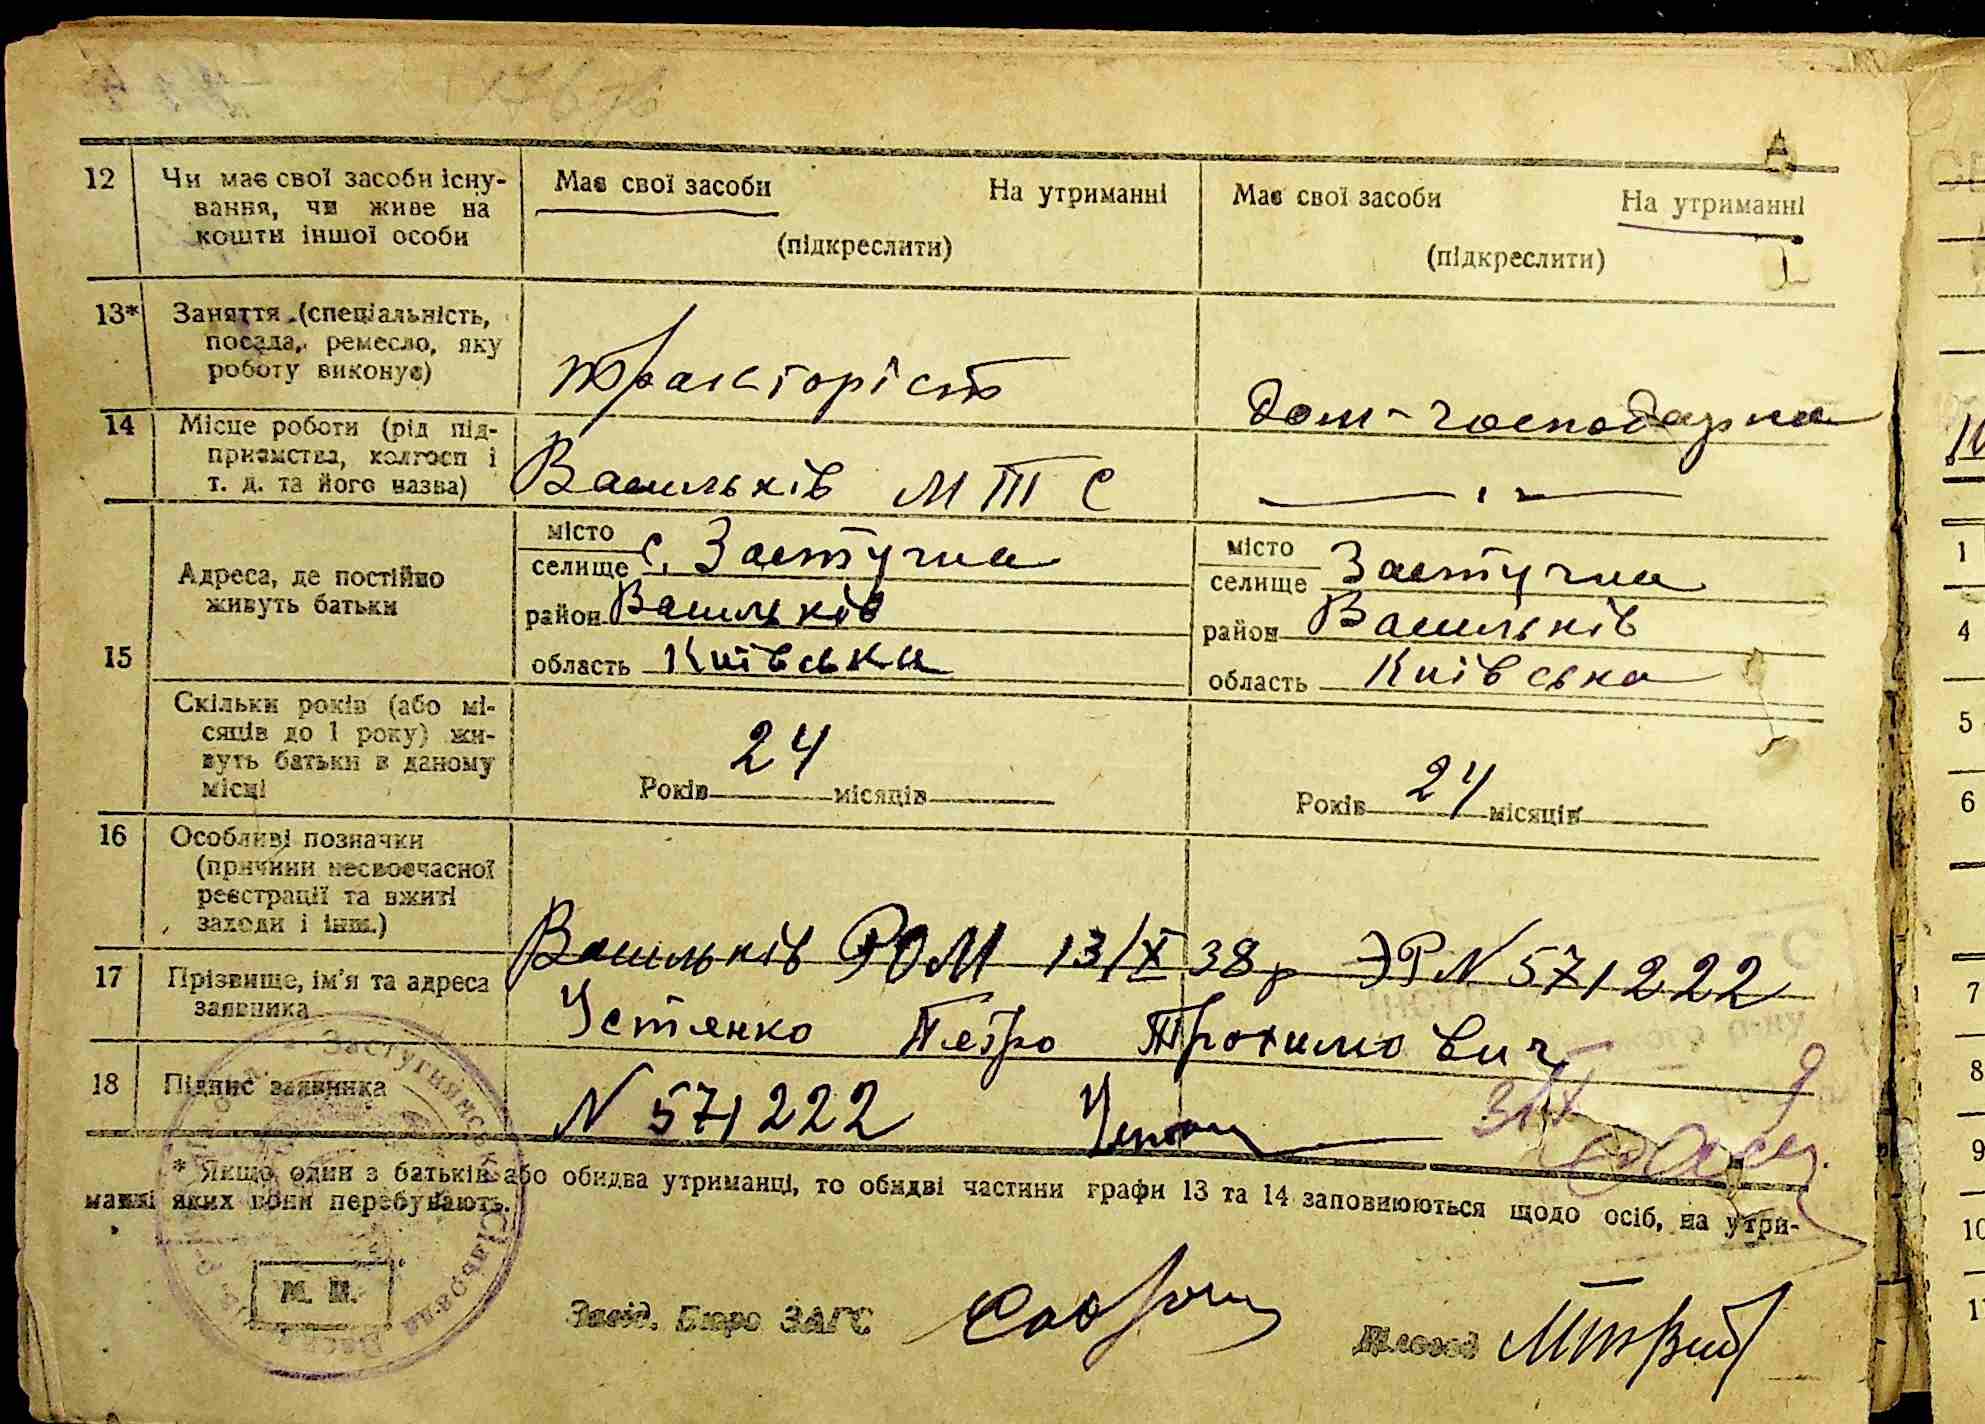 12 Чи має свої засоби існу- Має свої засоби На утриманні Має свої засоби На утриманні
вання, чи живе на
кошти іншої особи (підкреслити) (підкреслити)
13* Заняття (спеціальність,
посада, ремесло, яку
роботу виконує) тракторіст дом-господарка
14 Місце роботи (рід під-
приємства, колгосп і
т. д. та його назва) Васильків МТС
15 Адреса, де постійно
живуть батьки
місто
селище с. Застугна
район Васильків
область Київська
місто
селище Застугна
район Васильків
область Київська
Скільки років (або мі-
сяців до 1 року) жи-
вуть батьки в даному
місці
24
Років місяців
24
Років місяців
16 Особливі позначки
(причини несвоєчасної
реєстрації та вжиті
заходи і інш.)
Васильків РОМ 13/X 38 р ЭР N 571222
17 Прізвище, ім'я та адреса
заявника Устенко Петро Трохимович
18 Підпис заявника N 571222
* Якщо один з батьків або обидва утриманці, то обидві частини графи 13 та 14 заповнюються щодо осіб, на утри-
манні яких вони перебувають.
М. П.
Завід. Бюро ЗАГС Діловод
1
4
5
6
7
8
9
10